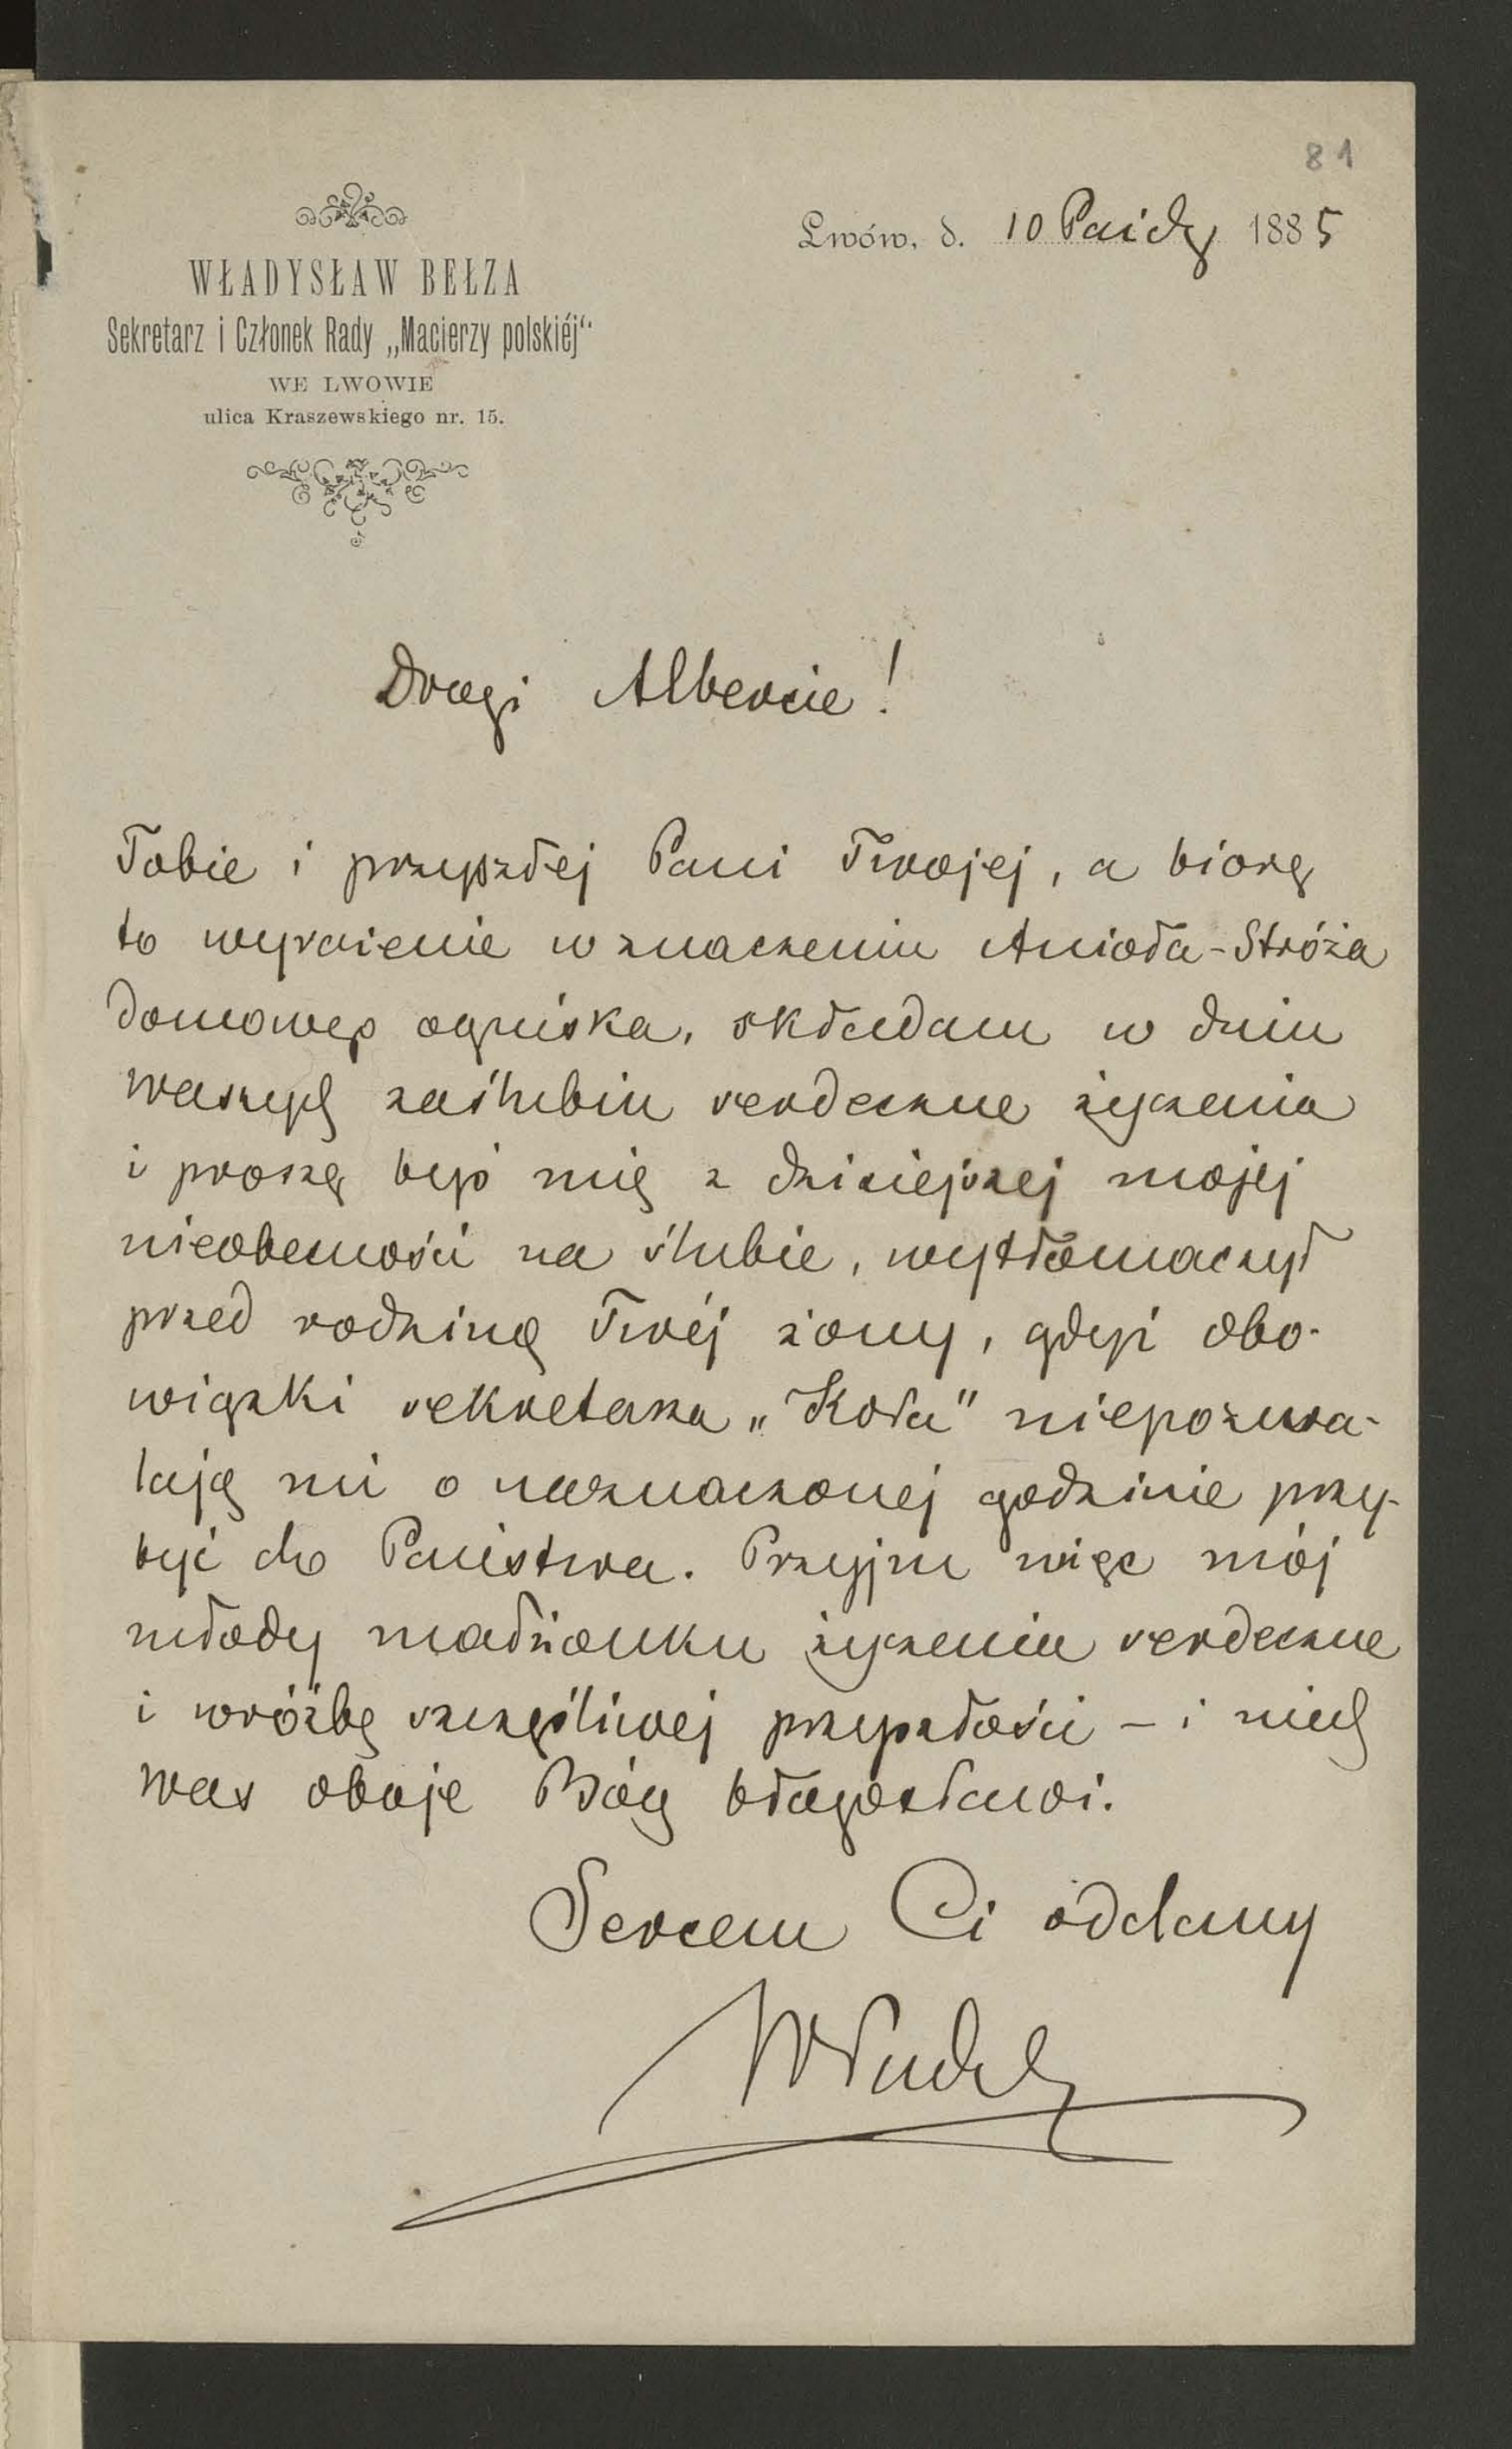 81
Lwów, d. 10 Paźdz 1885
WŁADYSŁAW BEŁZA
Sekretarz i Członek Rady „Macierzy polskiéj“
WE LWOWIE
ulica Kraszewskiego nr. 15.
Drogi Albercie!
Tobie i przyszłej Pani Twojej, a biorę
to wyrażenie w znaczeniu Anioła-Stróża
domowego ogniska, składam w dniu
waszych zaślubin serdeczne życzenia
i proszę byś mię z dzisiejszej mojej
nieobecności na ślubie, wytłómaczył
przed rodziną Twéj żony, gdyż obo-
wiązki sekretarza „Koła" niepozwa-
lają mi o naznaczonej godzinie przy-
być do Państwa. Przyjm więc mój
młody małżonku życzenia serdeczne
i wróżbę szczęśliwej przyszłości – i niech
was oboje Bóg błogosławi.
Sercem Ci oddany
Władysł